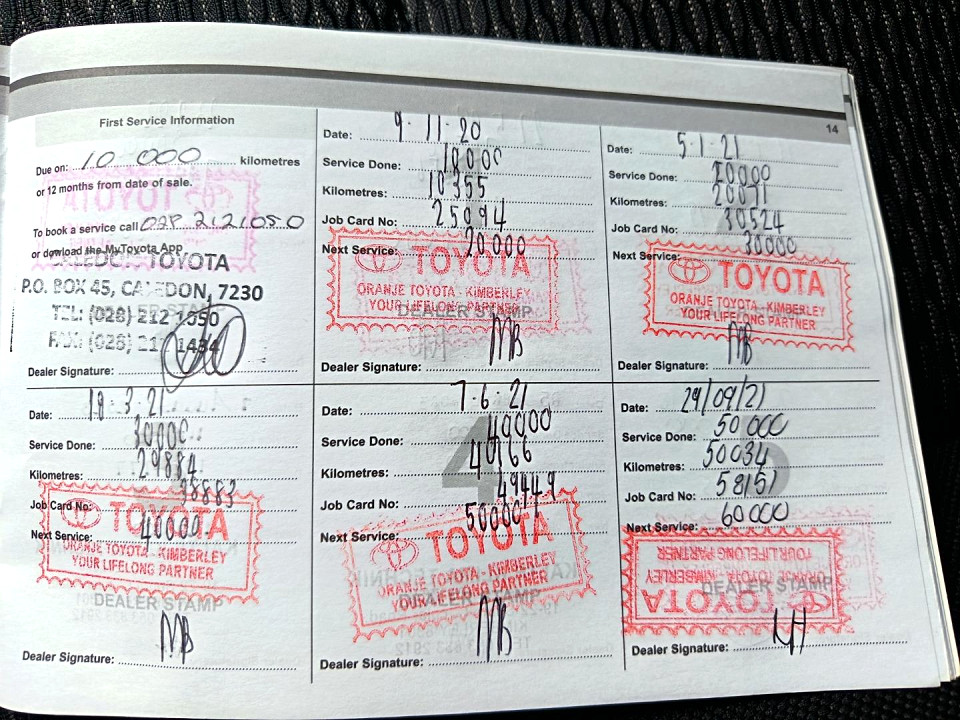 14
First Service Information
Due on: 10 000 kilometres
or 12 months from date of sale.
To book a service call 028 2121050
or download the MyToyota App
TOYOTA
P.O. BOX 45, CALEDON, 7230
TEL: (028) 212 1050
FAX: (028)
Dealer Signature:
Date: 9.11.20
Service Done: 10000
Kilometres: 10355
Job Card No: 25094
Next Service: 20000
TOYOTA
ORANJE TOYOTA - KIMBERLEY
YOUR LIFELONG PARTNER
DEALER STAMP
Dealer Signature: MB
Date: 5.1.21
Service Done: 20000
Kilometres: 20871
Job Card No: 30524
Next Service: 30000
TOYOTA
ORANJE TOYOTA - KIMBERLEY
YOUR LIFELONG PARTNER
Dealer Signature: MB
Date: 18.3.21
Service Done: 30000
Kilometres: 29884
Job Card No: 38883
Next Service: 40000
TOYOTA
ORANJE TOYOTA - KIMBERLEY
YOUR LIFELONG PARTNER
DEALER STAMP
Dealer Signature: MB
4
Date: 7.6.21
Service Done: 40000
Kilometres: 40166
Job Card No: 49449
Next Service: 50000
TOYOTA
ORANJE TOYOTA - KIMBERLEY
YOUR LIFELONG PARTNER
Dealer Signature: MB
Date: 29/09/21
Service Done: 50 000
Kilometres: 50034
Job Card No: 58151
Next Service: 60000
YOUR LIFELONG PARTNER
ORANJE TOYOTA - KIMBERLEY
TOYOTA
DEALER STAMP
Dealer Signature: